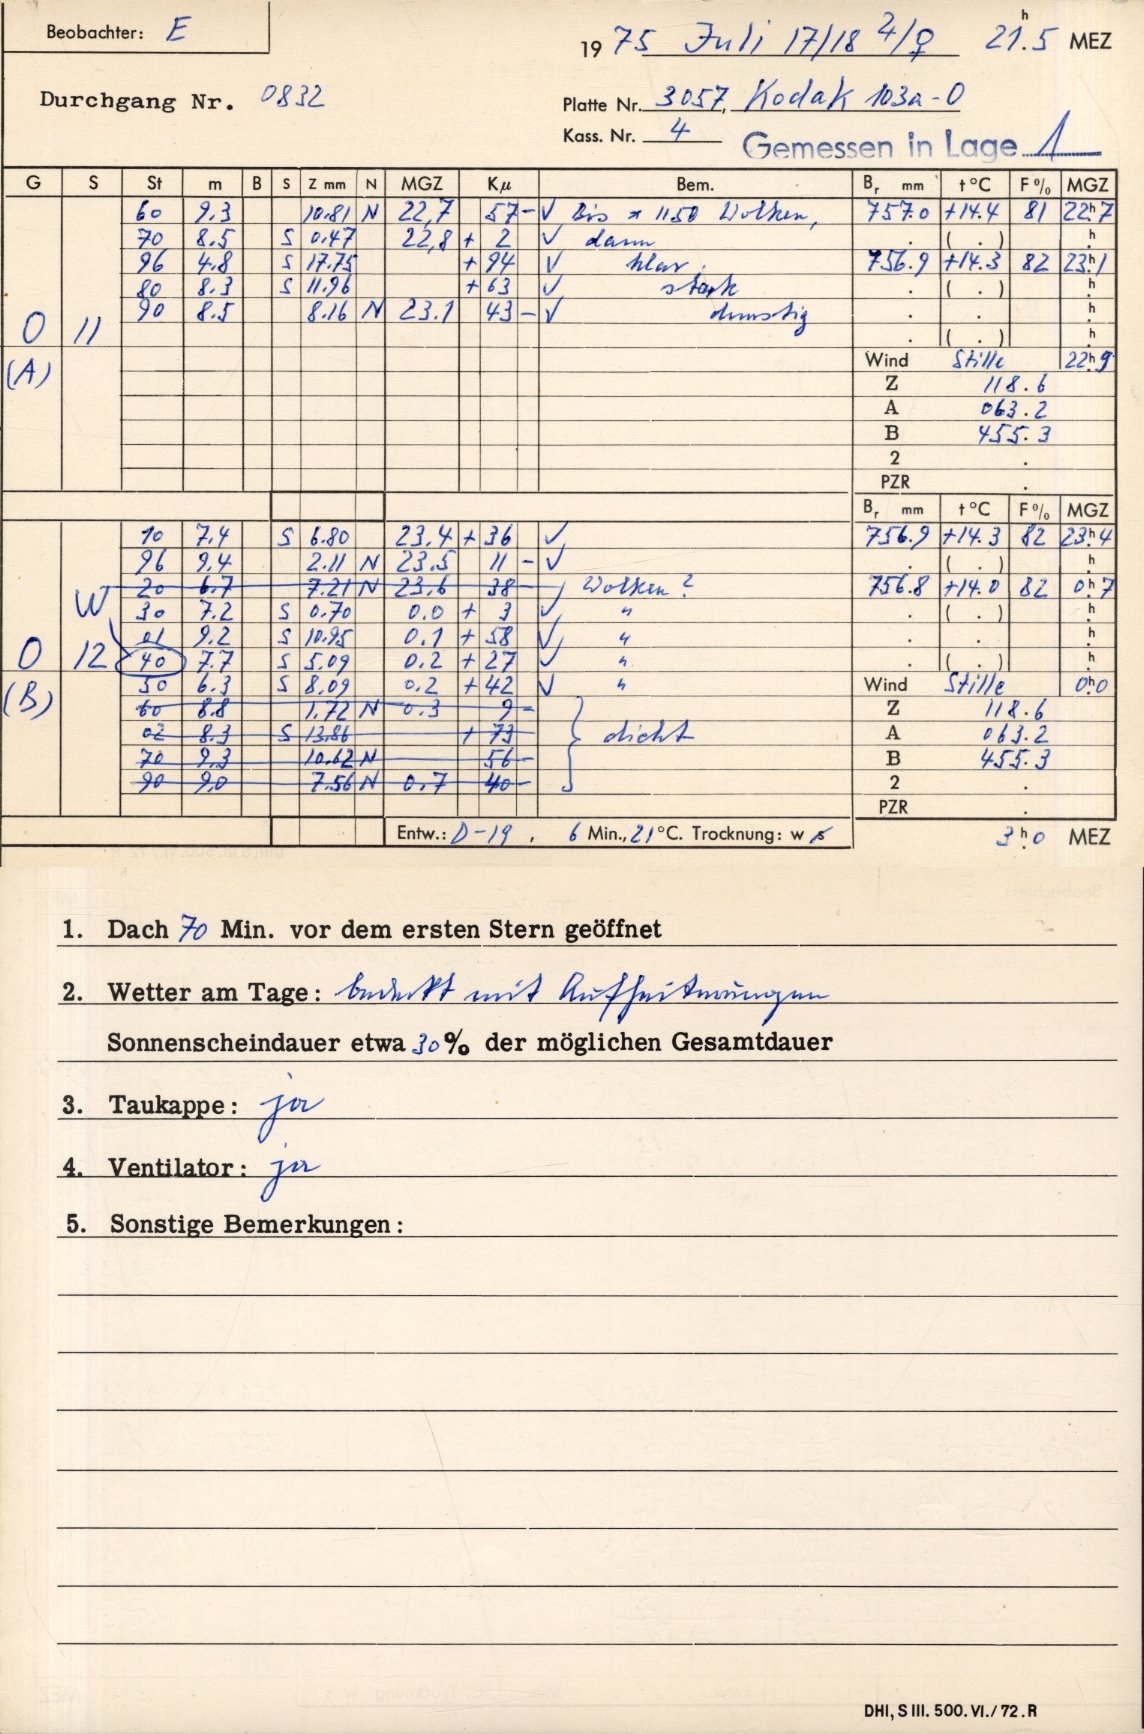 Beobachter: E
1975 Juli 17/18 ♃/♀ 21ʰ.5 MEZ
Durchgang Nr. 0832
Platte Nr. 3057, Kodak 103a-O
Kass. Nr. 4
Gemessen in Lage 1
G S St m B S Z mm N MGZ Kμ Bem. Br mm t °C F % MGZ
60 9.3 10.81 N 22,7 57 - √ Bis * 1150 Wolken, 757.0 +14.4 81 22ʰ.7
70 8.5 S 0.47 22,8 + 2 √ dann . ( . ) ʰ.
96 4.8 S 17.75 + 94 √ klar. 756.9 +14.3 82 23ʰ.1
80 8.3 S 11.96 + 63 √ stark . ( . ) ʰ.
90 8.5 8.16 N 23.1 43 - √ dunstig . . ʰ.
O 11 . ( . ) ʰ.
(A) Wind Stille 22ʰ.9
Z 118.6
A 063.2
B 455.3
2 .
PZR .
Br mm t °C F % MGZ
10 7.4 S 6.80 23.4 + 36 √ 756.9 +14.3 82 23ʰ.4
96 9.4 2.11 N 23.5 11 - √ . ( . ) ʰ.
W 20 6.7 7.21 N 23.6 38 - Wolken? 756.8 +14.0 82 0ʰ.7
30 7.2 S 0.70 0.0 + 3 √ " . ( . ) ʰ.
01 9.2 S 10.95 0.1 + 58 √ " . . ʰ.
O 12 40 7.7 S 5.09 0.2 + 27 √ " . ( . ) ʰ.
(B) 50 6.3 S 8.09 0.2 + 42 √ " Wind Stille 0ʰ.0
60 8.8 1.72 N 0.3 9 - Z 118.6
02 8.3 S 13.86 + 73 } dicht A 063.2
70 9.3 10.62 N 56 - B 455.3
90 9.0 7.56 N 0.7 40 - 2 .
PZR .
Entw.: D-19, 6 Min., 21 °C. Trocknung: w s 3ʰ.0 MEZ
1. Dach 70 Min. vor dem ersten Stern geöffnet
2. Wetter am Tage: bedeckt mit Aufheiterungen
Sonnenscheindauer etwa 30% der möglichen Gesamtdauer
3. Taukappe: ja
4. Ventilator: ja
5. Sonstige Bemerkungen:
DHI, S III. 500. VI./72. R